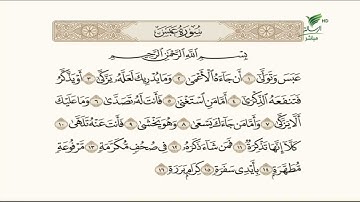 سُورَةُ عَبَسَ
بِسْمِ اللَّهِ الرَّحْمَٰنِ الرَّحِيمِ
عَبَسَ وَتَوَلَّىٰ ١ أَن جَاءَهُ الْأَعْمَىٰ ٢ وَمَا يُدْرِيكَ لَعَلَّهُ يَزَّكَّىٰ ٣ أَوْ يَذَّكَّرُ
فَتَنفَعَهُ الذِّكْرَىٰ ٤ أَمَّا مَنِ اسْتَغْنَىٰ ٥ فَأَنتَ لَهُ تَصَدَّىٰ ٦ وَمَا عَلَيْكَ
أَلَّا يَزَّكَّىٰ ٧ وَأَمَّا مَن جَاءَكَ يَسْعَىٰ ٨ وَهُوَ يَخْشَىٰ ٩ فَأَنتَ عَنْهُ تَلَهَّىٰ ١٠
كَلَّا إِنَّهَا تَذْكِرَةٌ ١١ فَمَن شَاءَ ذَكَرَهُ ١٢ فِي صُحُفٍ مُّكَرَّمَةٍ ١٣ مَّرْفُوعَةٍ
مُّطَهَّرَةٍ ١٤ بِأَيْدِي سَفَرَةٍ ١٥ كِرَامٍ بَرَرَةٍ ١٦
HD
مباشر